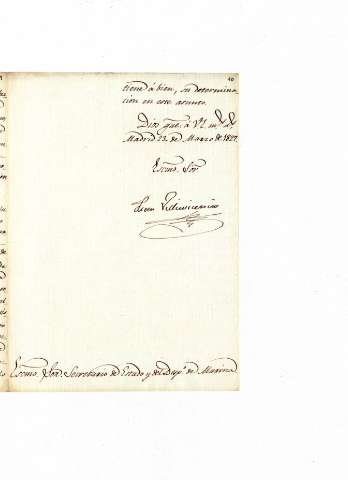 40
tiene á bien, su determina
cion en este asunto.
Dios gue. á V.E. ms. as.
Madrid 23. de Marzo de 1827.
Excmo. Sor.
Juan Villavicencio
Excmo. Sor. Secretario de Estado y del Desp.º de Marina